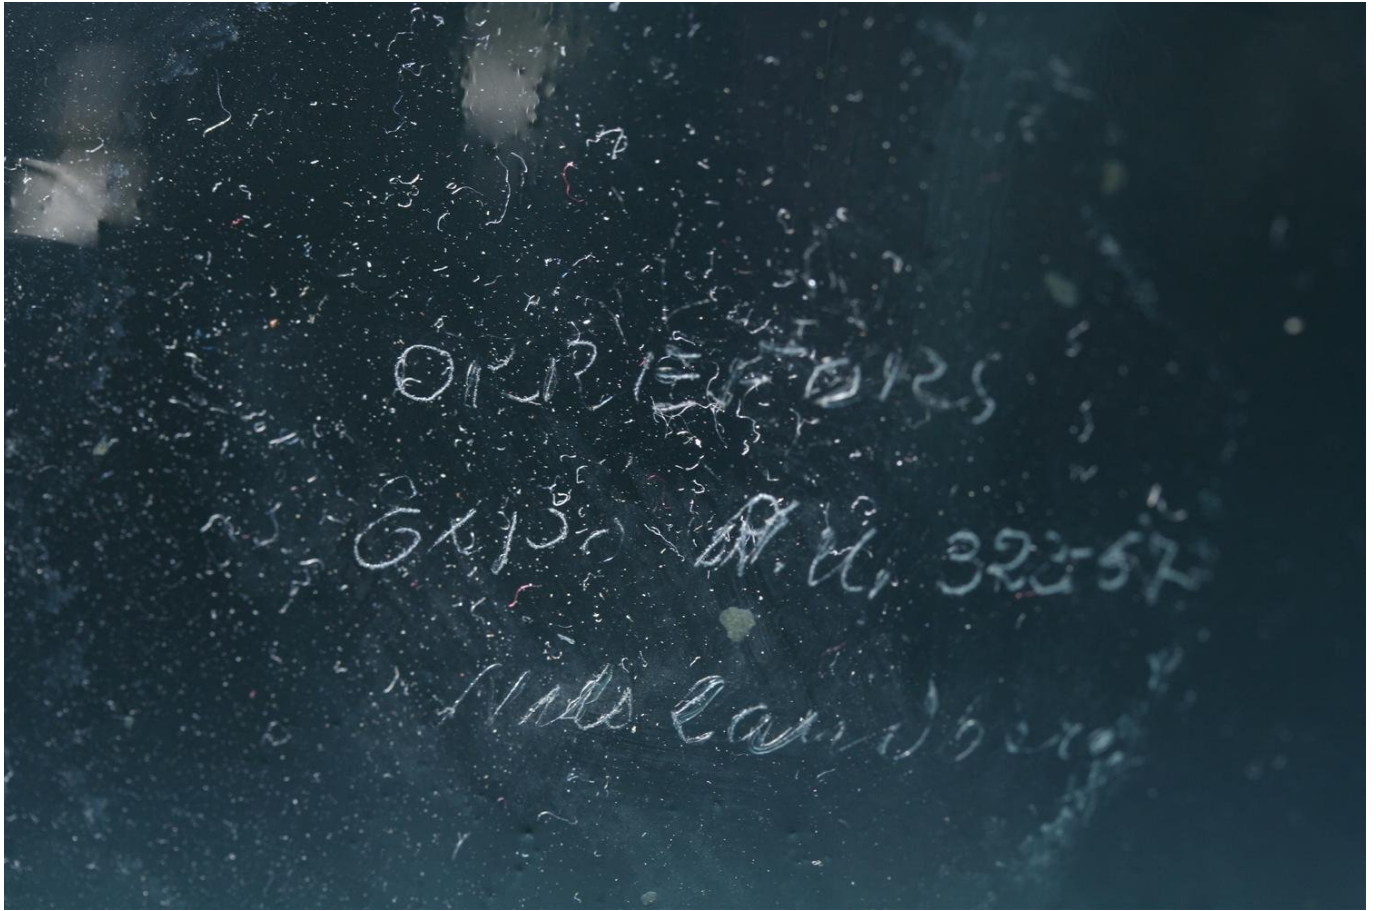 ORREFORS
Expo N.U. 323-57
Nils Landberg